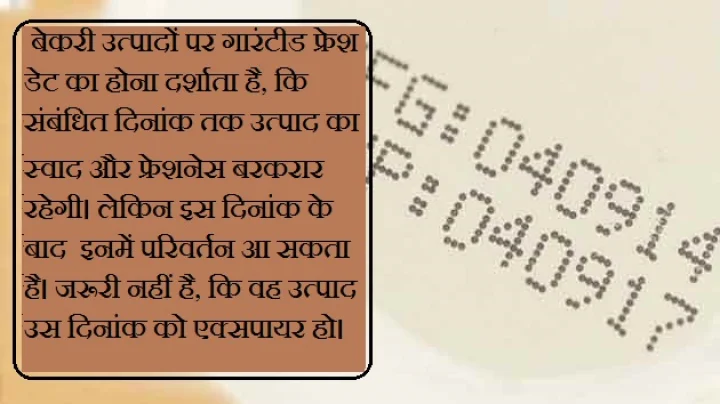 बेकरी उत्पादों पर गारंटीड फ्रेश
डेट का होना दर्शाता है, कि
संबंधित दिनांक तक उत्पाद का
स्वाद और फ्रेशनेस बरकरार
रहेगी। लेकिन इस दिनांक के
बाद इनमें परिवर्तन आ सकता
है। जरूरी नहीं है, कि वह उत्पाद
उस दिनांक को एक्सपायर हो।
FG:040914
P:040917